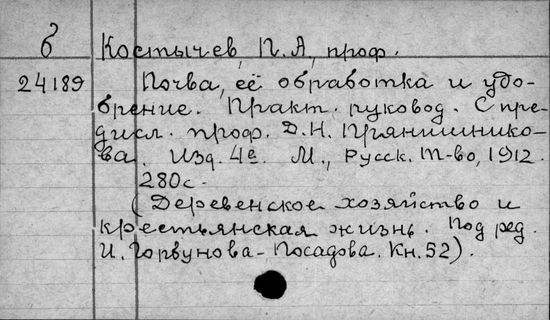 б Костычев, П. А., проф.
24189 Почва, её обработка и удо-
брение. Практ. руковод. С пре-
дисл. проф. Д. Н. Прянишнико-
ва. Изд. 4е. М., Русск. т-во, 1912.
280с.
(Деревенское хозяйство и
крестьянская жизнь. Под ред.
И. Горбунова-Посадова. Кн. 52).